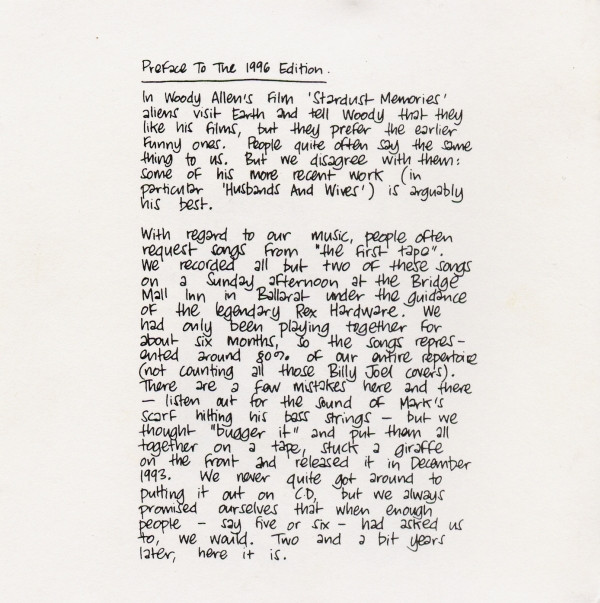 Preface To The 1996 Edition.
In Woody Allen's film 'Stardust Memories'
aliens visit Earth and tell Woody that they
like his films, but they prefer the earlier
funny ones. People quite often say the same
thing to us. But we disagree with them:
some of his more recent work (in
particular 'Husbands And Wives') is arguably
his best.
With regard to our music, people often
request songs from "the first tape".
We recorded all but two of these songs
on a Sunday afternoon at the Bridge
Mall Inn in Ballarat under the guidance
of the legendary Rex Hardware. We
had only been playing together for
about six months, so the songs repres-
ented around 80% of our entire repertoire
(not counting all those Billy Joel covers).
There are a few mistakes here and there
- listen out for the sound of Mark's
scarf hitting his bass strings - but we
thought "bugger it" and put them all
together on a tape, stuck a giraffe
on the front and released it in December
1993. We never quite got around to
putting it out on CD, but we always
promised ourselves that when enough
people - say five or six - had asked us
to, we would. Two and a bit years
later, here it is.